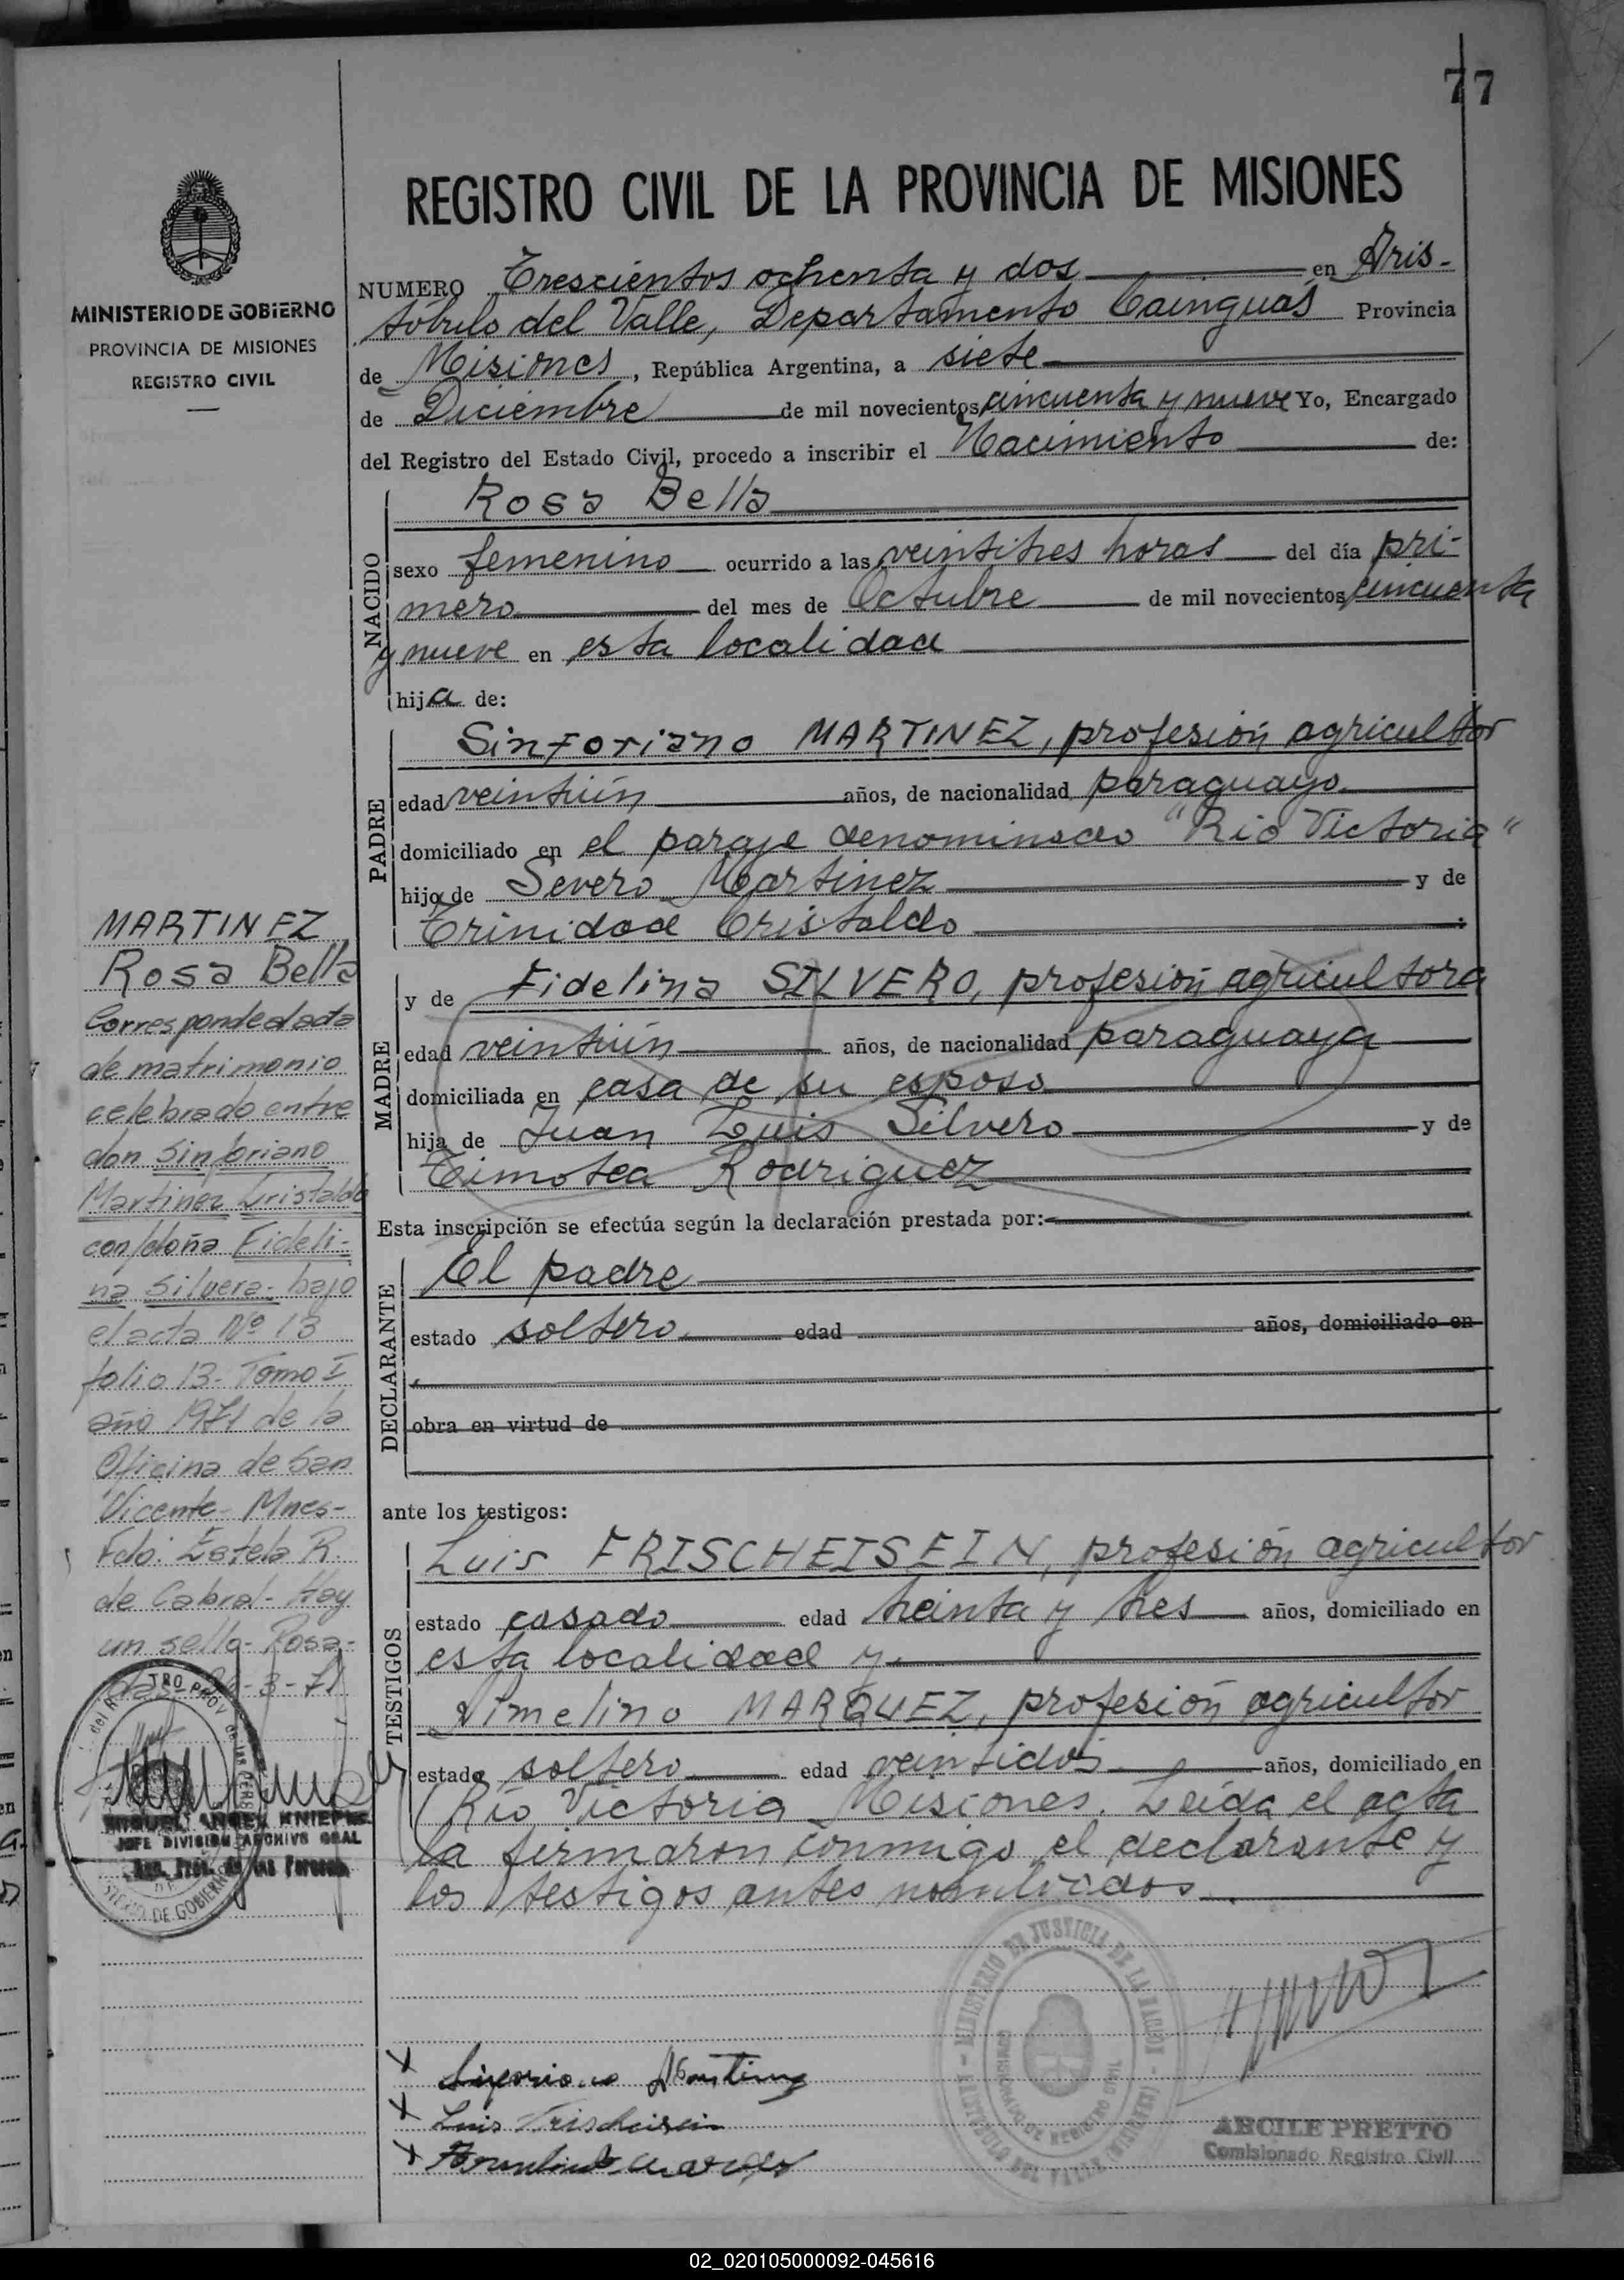 77
REGISTRO CIVIL DE LA PROVINCIA DE MISIONES
MINISTERIO DE GOBIERNO
PROVINCIA DE MISIONES
REGISTRO CIVIL
NUMERO Trescientos ochenta y dos en Aris-
tobulo del Valle, Departamento Cainguas Provincia
de Misiones, República Argentina, a siete
de Diciembre de mil novecientos cincuenta y nueve Yo, Encargado
del Registro del Estado Civil, procedo a inscribir el Nacimiento de:
NACIDO
Rosa Bella
sexo femenino ocurrido a las veintitres horas del día pri-
mero del mes de Octubre de mil novecientos cincuenta
y nueve en esta localidad
hija de:
PADRE
Sinforiano MARTINEZ, profesión agricultor
edad veintiún años, de nacionalidad paraguayo
domiciliado en el paraje denominado "Rio Victoria"
hijo de Severo Martinez y de
Trinidad Cristaldo
MADRE
y de Fidelina SILVERO, profesión agricultora
edad veintiún años, de nacionalidad paraguaya
domiciliada en casa de su esposo
hija de Juan Luis Silvero y de
Timotea Rodriguez
Esta inscripción se efectúa según la declaración prestada por:
DECLARANTE
El padre
estado soltero edad años, domiciliado en
obra en virtud de
ante los testigos:
TESTIGOS
Luis FRISCHEISEIN, profesión agricultor
estado casado edad treinta y tres años, domiciliado en
esta localidad y
MARQUEZ, profesión agricultor
estado soltero edad veintidos años, domiciliado en
Río Victoria Misiones. Leída el acta
la firmaron conmigo el declarante y
los testigos antes nombrados
MARTINEZ
Rosa Bella
Corresponde al acta
de matrimonio
celebrado entre
don Sinforiano
Martinez Cristaldo
con doña Fideli-
na Silvera- bajo
el acta Nº 13
folio 13- Tomo I
año 1971 de la
Oficina de San
Vicente- Mnes-
Fdo: Estela R.
de Cabral- Hay
un sello- Posa-
das -3-71
MIGUEL ANGEL KNIEPSS
JEFE DIVISION ARCHIVO GRAL
Reg. Prov. de las Personas
MINISTERIO DE JUSTICIA DE LA NACION
ARISTOBULO DEL VALLE (MISIONES)
Luis Frischeisein
ARCILE PRETTO
Comisionado Registro Civil
02_020105000092-045616